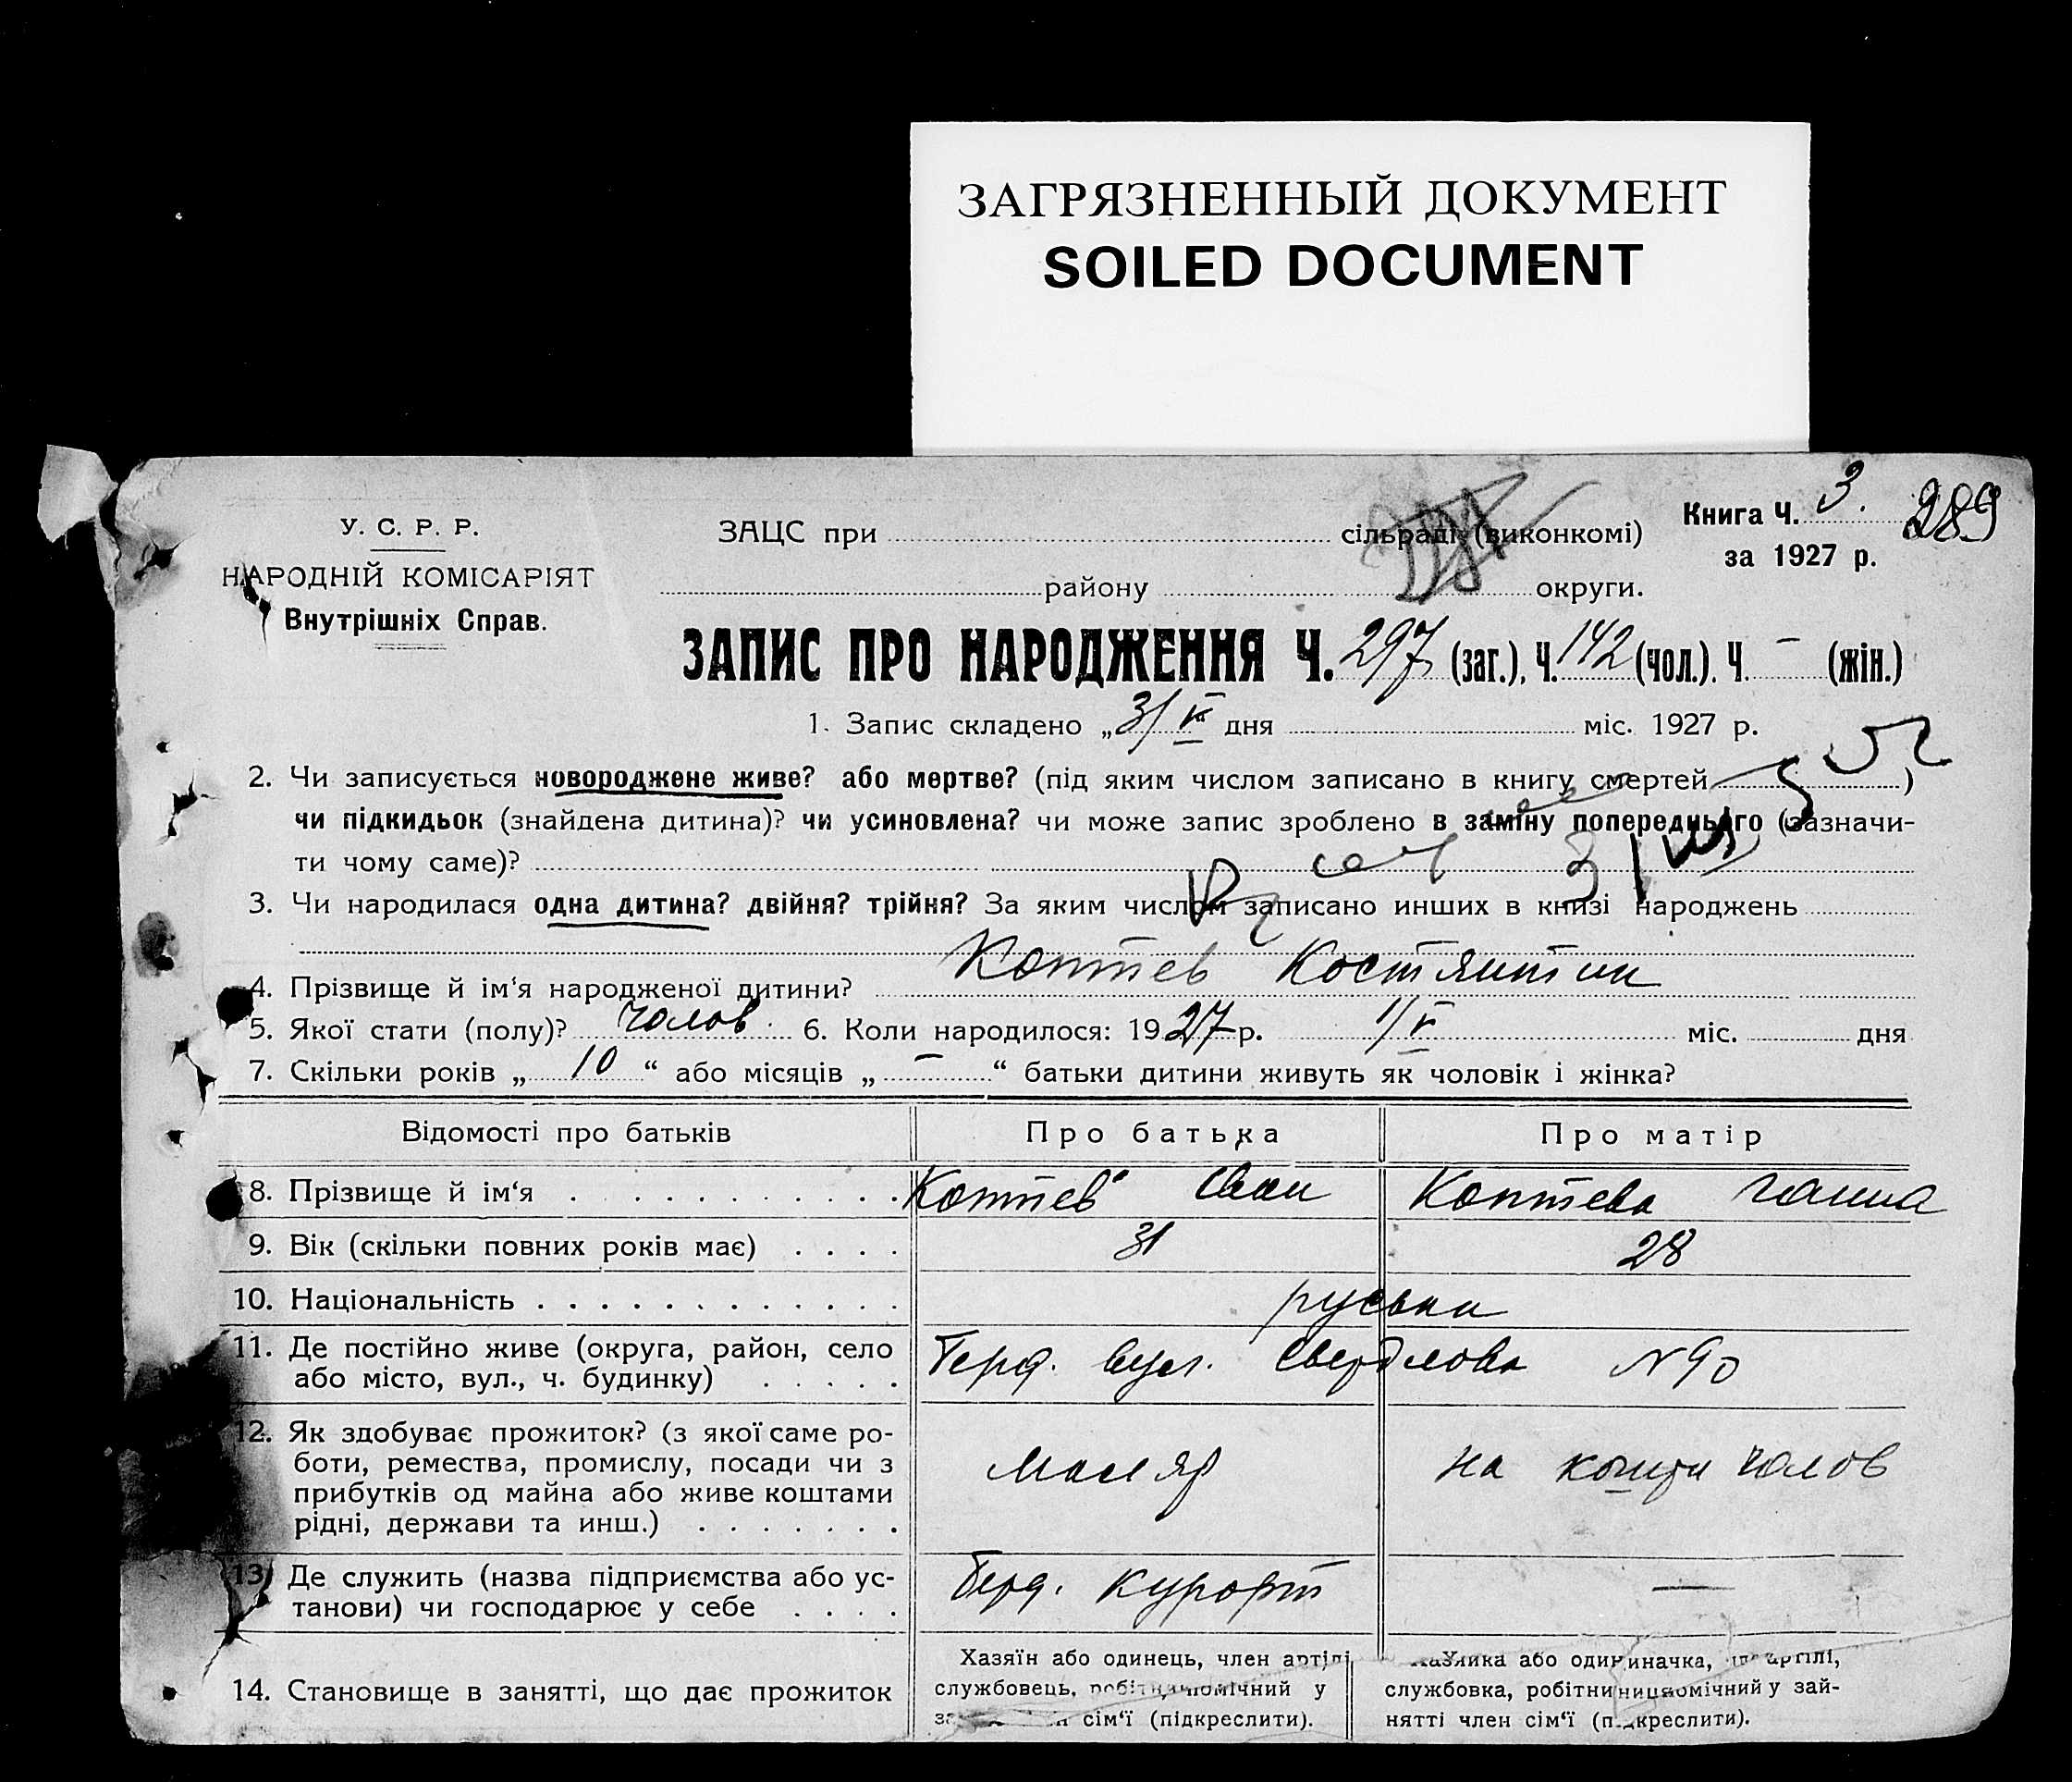 ЗАГРЯЗНЕННЫЙ ДОКУМЕНТ
SOILED DOCUMENT
У. С. Р. Р.
НАРОДНІЙ КОМІСАРІЯТ
Внутрішніх Справ.
ЗАЦС при сільраді (виконкомі)
району округи.
Книга Ч. 3. 289
за 1927 р.
ЗАПИС ПРО НАРОДЖЕННЯ Ч. 297 (заг.), Ч. 142 (чол.). Ч. – (жін.)
1. Запис складено „31/V дня міс. 1927 р.
2. Чи записується новороджене живе? або мертве? (під яким числом записано в книгу смертей )
чи підкидьок (знайдена дитина)? чи усиновлена? чи може запис зроблено в заміну попереднього (зазначи-
ти чому саме)?
3. Чи народилася одна дитина? двійня? трійня? За яким числом записано инших в книзі народжень
4. Прізвище й ім'я народженої дитини? Коптев Костянтин
5. Якої стати (полу)? чолов. 6. Коли народилося: 1927 р. 1/V міс. дня
7. Скільки років „ 10 “ або місяців „ – “ батьки дитини живуть як чоловік і жінка?
Відомості про батьків Про батька Про матір
8. Прізвище й ім'я Коптев Іван Коптева Ганна
9. Вік (скільки повних років має) 31 28
10. Національність руськи
11. Де постійно живе (округа, район, село
або місто, вул., ч. будинку) Берд. вул. Свердлова N 90
12. Як здобуває прожиток? (з якої саме ро-
боти, ремества, промислу, посади чи з
прибутків од майна або живе коштами
рідні, держави та инш.) Маляр на кошти чолов
13. Де служить (назва підприємства або ус-
танови) чи господарює у себе Берд. курорт —
14. Становище в занятті, що дає прожиток
Хазяїн або одинець, член артілі
службовець, у
сім'ї (підкреслити).
або одиначка, артілі,
службовка, у зай-
нятті член сім'ї (підкреслити).